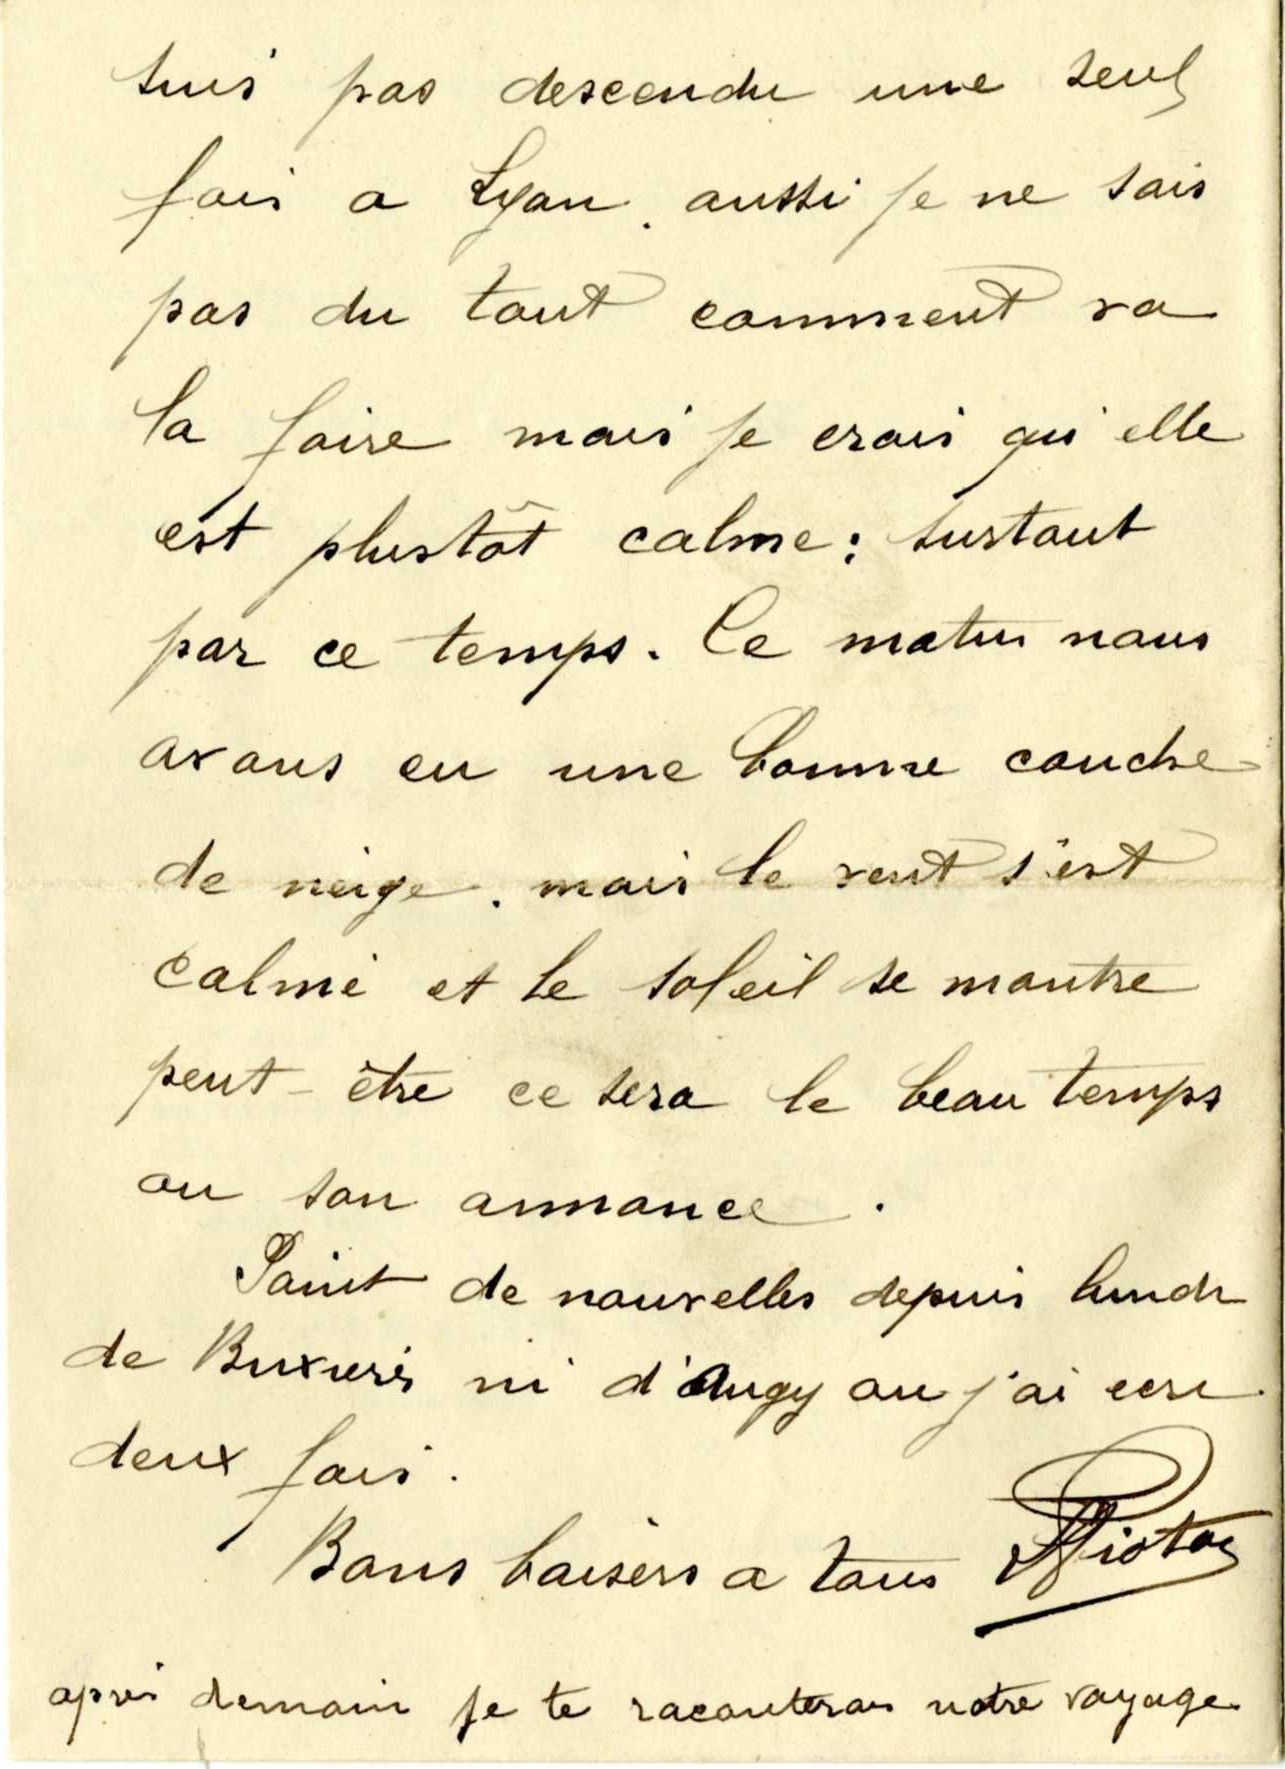 suis pas descendu une seul
fois a Lyon. aussi je ne sais
pas du tout comment va
la foire mais je crois qu'elle
est plustôt calme : surtout
par ce temps. Ce matin nous
avons eu une bonne couche
de neige. mais le vent s'est
calmé et le soleil se montre
peut-être ce sera le beau temps
ou son annonce.
Point de nouvelles depuis lundi
de Buxures ni d'Augy ou j'ai ecri
deux fois.
Bons baisers a tous
apres demain je te raconterai notre voyage